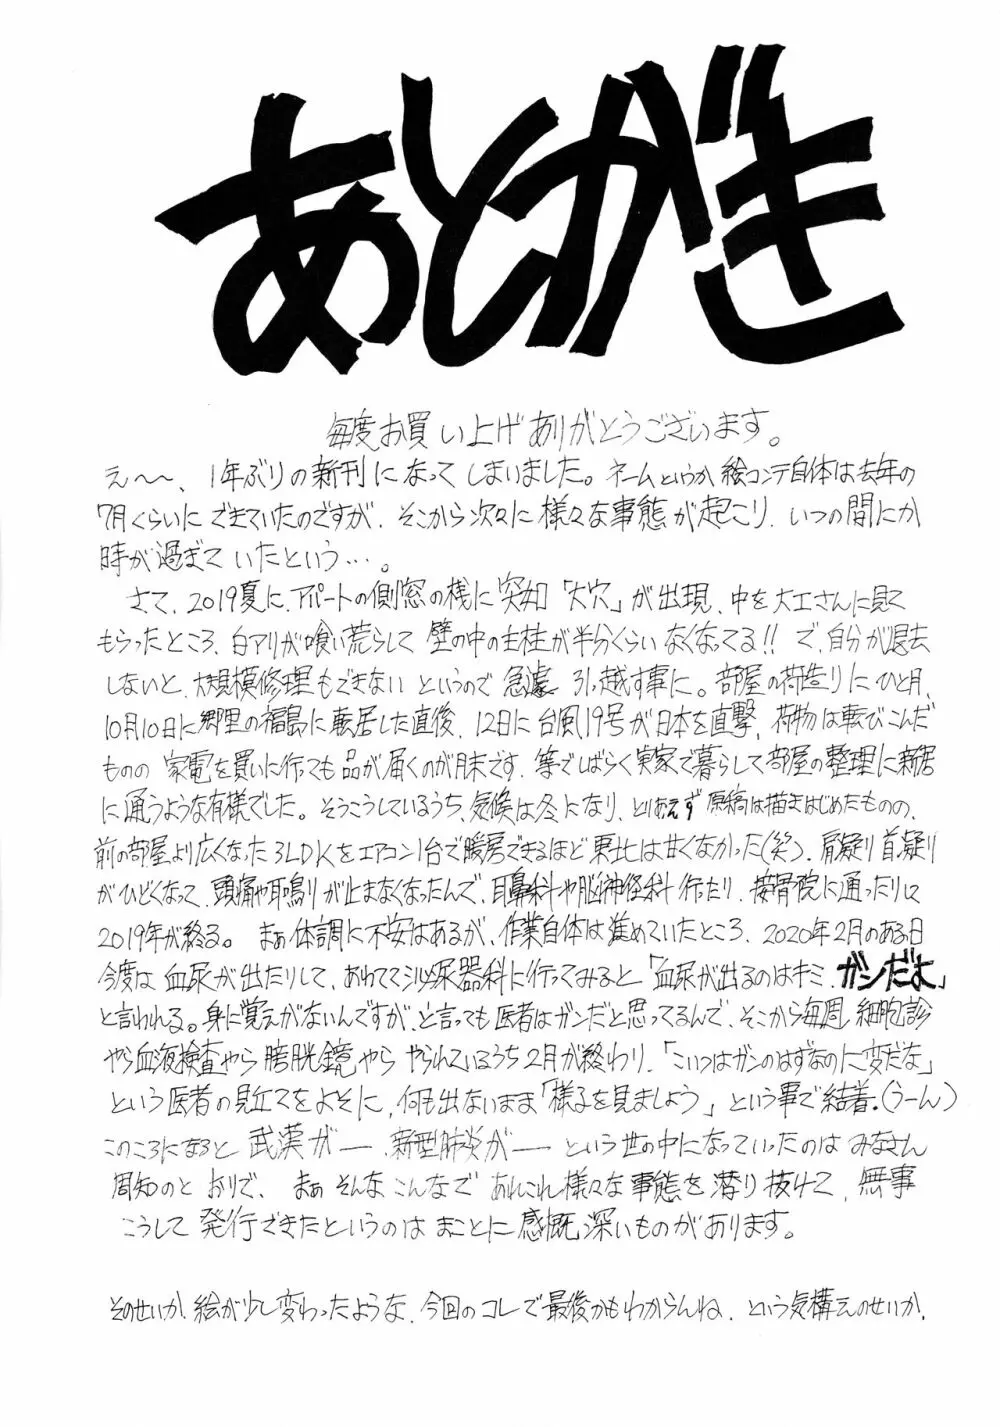 あとがき
毎度お買い上げありがとうございます。
え〜〜、1年ぶりの新刊になってしまいました。ネームというか絵コンテ自体は去年の
7月くらいにできていたのですが、そこから次々に様々な事態が起こり、いつの間にか
時が過ぎていたという…。
さて、2019夏に、アパートの側窓の桟に突如「大穴」が出現、中を大工さんに見て
もらったところ、白アリが喰い荒らして壁の中の主柱が半分くらいなくなってる!!で、自分が退去
しないと、大規模修理もできないというので急遽引っ越す事に。部屋の荷造りにひと月、
10月10日に郷里の福島に転居した直後、12日に台風19号が日本を直撃、荷物は転びこんだ
ものの家電を買いに行っても品が届くのが月末です、等でしばらく実家で暮らして部屋の整理に新居
に通うような有様でした。そうこうしているうち、気候は冬になり、とりあえず原稿は描きはじめたものの、
前の部屋より広くなった3LDKをエアコン1台で暖房できるほど東北は甘くなかった(笑)。肩凝り首凝り
がひどくなって、頭痛や耳鳴りが止まなくなったんで、耳鼻科や脳神経科行ったり、接骨院に通ったりして
2019年が終る。まぁ体調に不安はあるが、作業自体は進めていたところ、2020年2月のある日
今度は血尿が出たりして、あわてて泌尿器科に行ってみると「血尿が出るのはキミ、ガンだよ」
と言われる。身に覚えがないんですが、と言っても医者はガンだと思ってるんで、そこから毎週細胞診
やら血液検査やら膀胱鏡やらやられているうち2月が終わり、「こいつはガンのはずなのに変だな」
という医者の見立てをよそに、何も出ないまま「様子を見ましょう」という事で結着。(うーん)
このころになると武漢が──新型肺炎が──という世の中になっていったのはみなさん
周知のとおりで、まぁそんなこんなであれこれ様々な事態を潜り抜けて、無事
こうして発行できたというのはまことに感慨深いものがあります。
そのせいか、絵が少し変わったような、今回のコレで最後かもわからんね、という気構えのせいか、